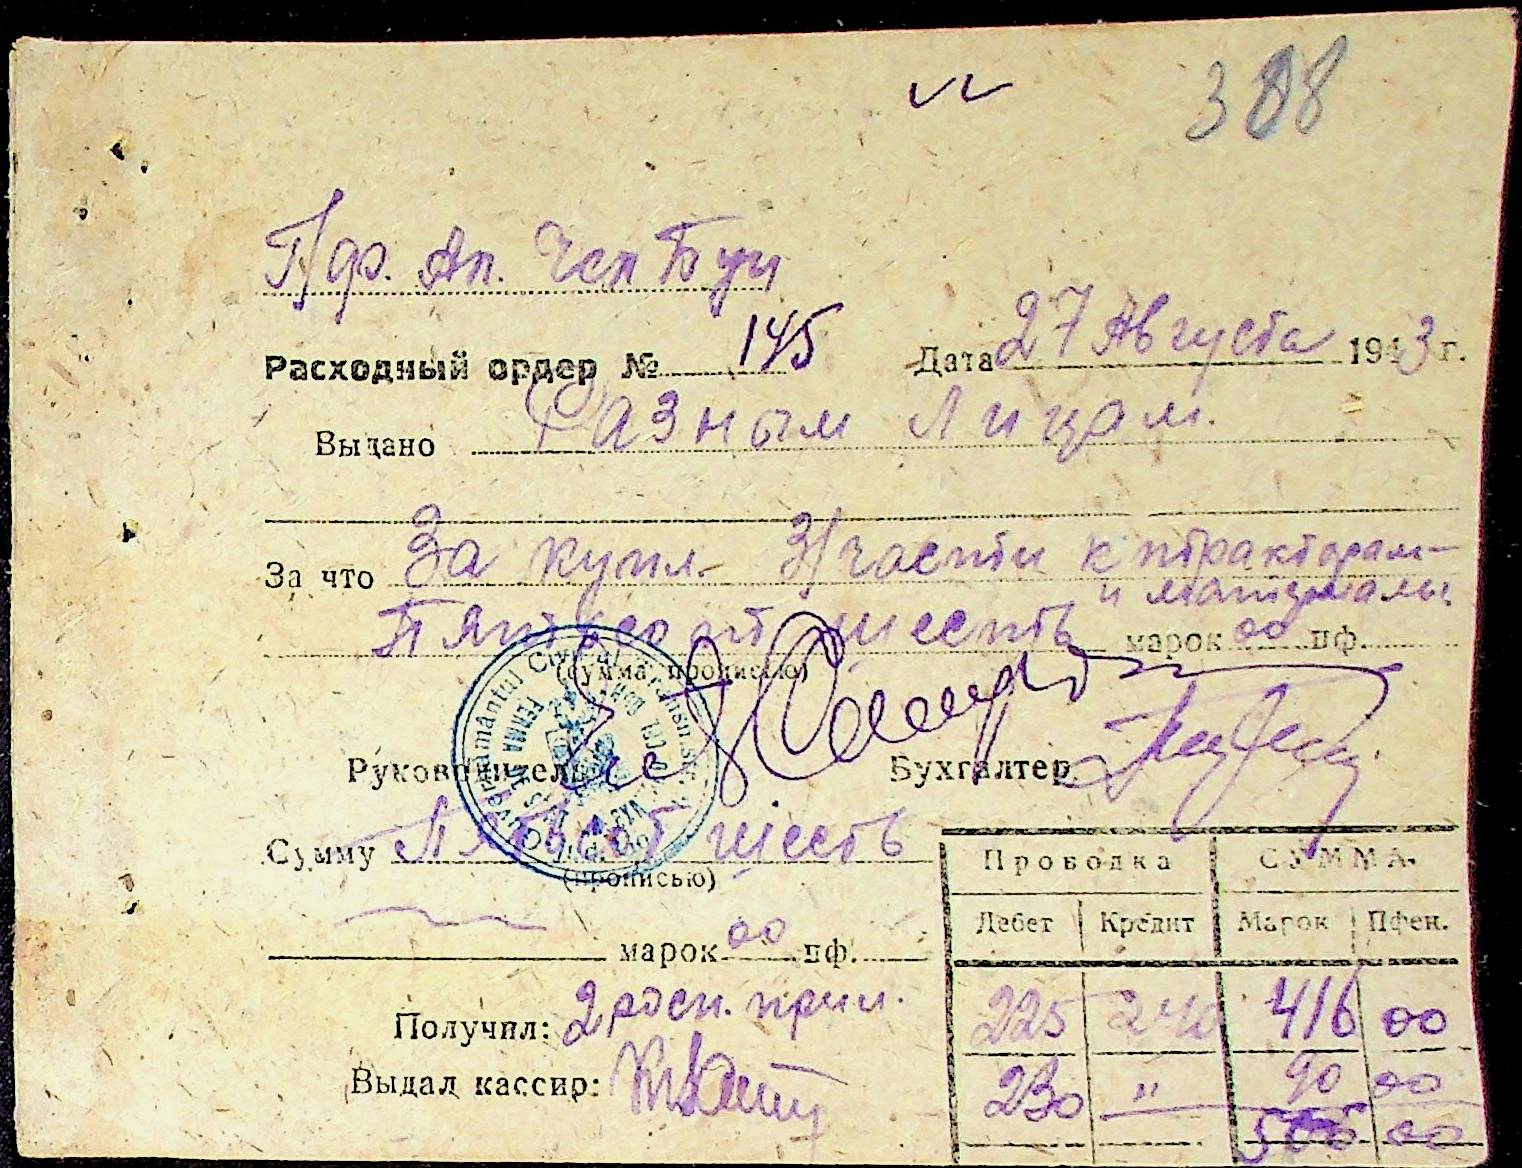 388
Пдр. Ап. Чсп Буц
Расходный ордер № 145 Дата 27 Августа 1943 г.
Выдано Разным Лицам.
За что За купл. З/части к тракторам
и материалы
Пятьсот шесть марок 00 пф.
(сумма прописью)
Guvernământul
FERMA
Руководитель Бухгалтер
Сумму Пятьсот шесть
(прописью)
марок 00 пф.
Получил: 2 росп. прил.
Выдал кассир:
Проводка СУММА
Дебет Кредит Марок Пфен.
225 240 416 00
230 " 90 00
506 00